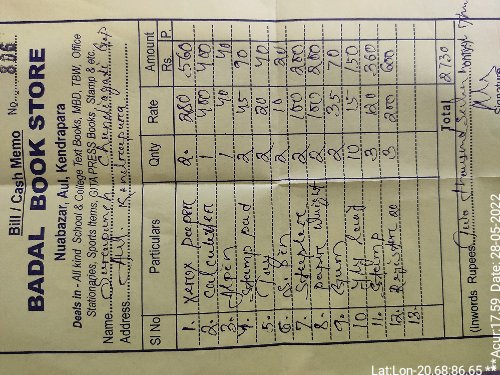 Bill / Cash Memo No. 806
BADAL BOOK STORE
Nuabazar, Aul, Kendrapara
Deals in - All kind School & College Text Books, MBD, TBW, Office
Stationaries, Sports Items, GITA PRESS Books, Stamp & etc.
Name
Address Aul, Kendrapara
Sl No Particulars Qnty Rate Amount Rs. P.
1. Xerox peaper 2 280 560
2. Calculater 1 400 400
3. 1 40 40
4. Stamp pad 2 45 90
5. 2 20 40
6. 2 10 20
7. 2 100 200
8. Peaper 2 100 200
9. Gum 2 35 70
10. 10 15 150
11. Stamp 3 120 360
12. Register 3 200 600
13.
Total 2730
(Inwords Rupees Two thousand seven
Signature
**Acur:17.59 Date:-28-05-2022
Lat:Lon-20.68:86.65